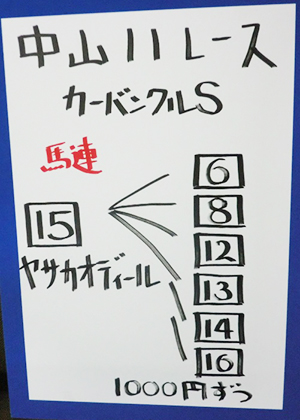 中山11レース
カーバンクルS
馬連
15
ヤサカオディール
6
8
12
13
14
16
1000円ずつ